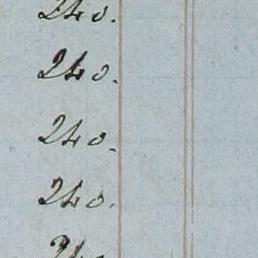 240.
240.
240.
240.
240.